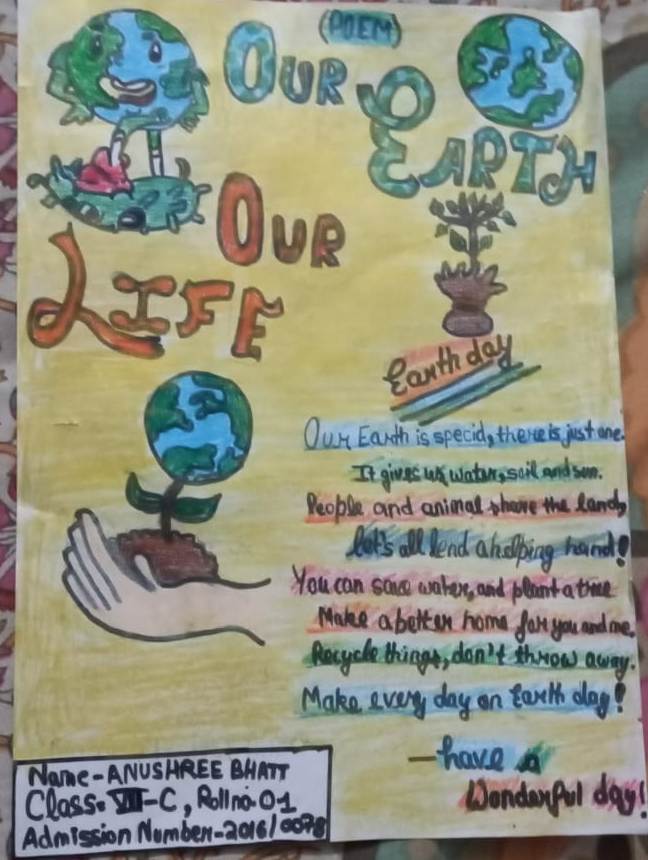 (POEM)
OUR
EARTH
OUR
LIFE
Earth day
Our Earth is specid, there is just one.
It gives us water, soil and sun.
People and animal share the land,
let's all lend a helping hand!
You can save water, and plant a tree
Make a better home for you and me.
Recycle things, don't throw away.
Make every day an Earth day!
— have a
Wonderful day!
Name-ANUSHREE BHATT
Class- VII-C, Rollno-01
Admission Number-2016/0078